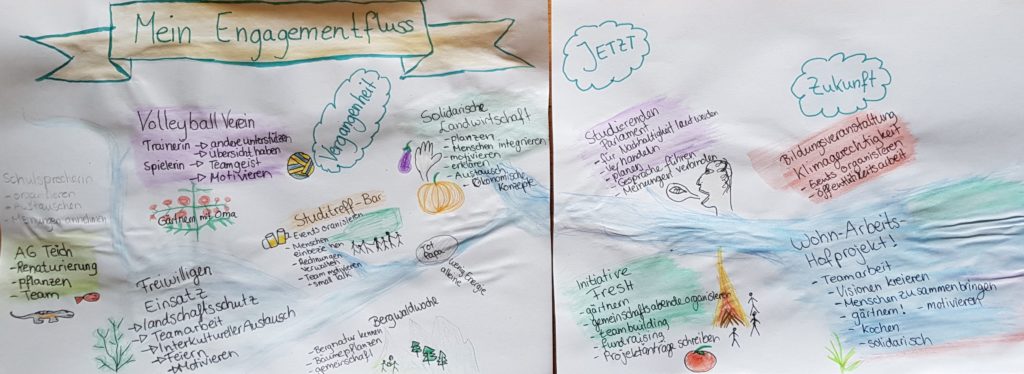 Mein Engagementfluss
Vergangenheit
Volleyball Verein
Trainerin → andere unterstützen
→ Übersicht haben
Spielerin → Teamgeist
→ Motivieren
Schulsprecherin
- organisieren
- austauschen
- Meinungen annehmen
Gärtnern mit Oma
AG Teich
- Renaturierung
- pflanzen
- Team
Freiwilligen
Einsatz
→ landschaftsschutz
→ Teamarbeit
→ Interkultureller Austausch
→ Feiern
→ Motivieren
Studitreff-Bar
- Events oranisieren
- Menschen
einbeziehen
- Rechnungen
verwalten
- Team motivieren
- small talk
Solidarische
Landwirtschaft
- pflanzen
- Menschen integrieren
- motivieren
- erklären
- Austausch
- Ökonomische
Konzepte
Tot
Papa
wenig Energie
alleine
Bergwaldwoche
- Bergnatur kennen
- Bäume pflanzen
- gemeinschaft
JETZT
Studierenden
Parlament
- für Nachhaltigkeit laut werden
- verhandeln
- planen
- Gespräche führen
- Meinungen verbinden
Initiative
Fresh
- gärtnern
- gemeinschaftsabende organisieren
- teambuilding
- Fundraising
- Projektanträge schreiben
Zukunft
Bildungsveranstaltung
Klimagerechtigkeit
- Events organisieren
- Öffentlichkeitsarbeit
Wohn-Arbeits-
Hofprojekt!
- Teamarbeit
- Visionen kreieren
- Menschen zusammenbringen
- gärtnern! - motivieren
- kochen
- solidarisch